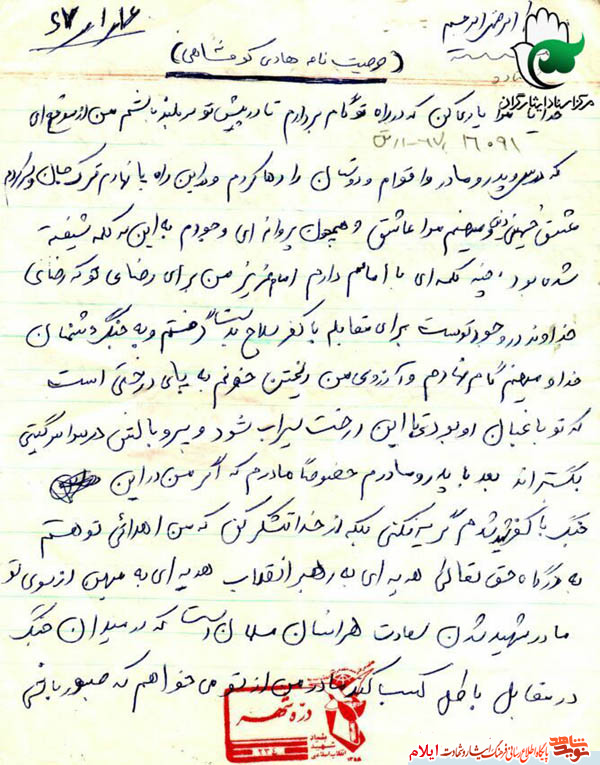 ۶۷/۱/۱۶
(وصیت نامه هادی کرمشاهی)
مرکز اسناد ایثارگران
خدایا مرا یاری کن که در راه تو گام بردارم تا در پیش تو سربلند باشم من از موقع ای
۱۶۰۹۱
که درس و پدر و مادر و اقوام و دوستان را رها کردم و در این راه پا نهادم ترک جان و
عشق خمینی و میهنم مرا عاشق و همچون پروانه ای وجودم به این سه کلمه شیفته
شده بود. چند کلمه ای با امامم دارم امام عزیز من برای رضای تو که رضای
خداوند در وجود توست برای مقابله با کفر سلاح بدست گرفتم و به جنگ دشمنان
خدا و میهنم گام نهادم و آرزوی من ریختن خونم به پای درختی است
که تو باغبان او بودی تا این درخت سیراب شود و پر و بالش در سراسر گیتی
بگستراند بعد با پدر و مادرم خصوصاً مادرم که اگر من در این
جنگ با کفر شهید شدم گریه نکنی بلکه از خدا تشکر کن که من اهدائی تو هستم
به درگاه حق تعالی هدیه ای به رهبر انقلاب هدیه ای به میهن از سوی تو
مادر شهید شدن سعادت هر انسان مسلمان است که در میدان جنگ
در مقابل باطل کسب کند مادر من از تو می خواهم که صبور باشی
دره شهر
بنیاد شهید انقلاب اسلامی
نوید شاهد
پایگاه اطلاع رسانی فرهنگ ایثار و شهادت ایلام